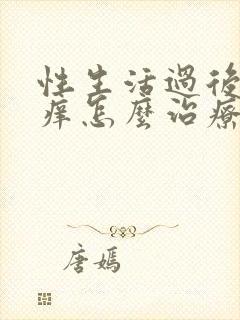 性生活過後
痒怎麼治療
唐嫣